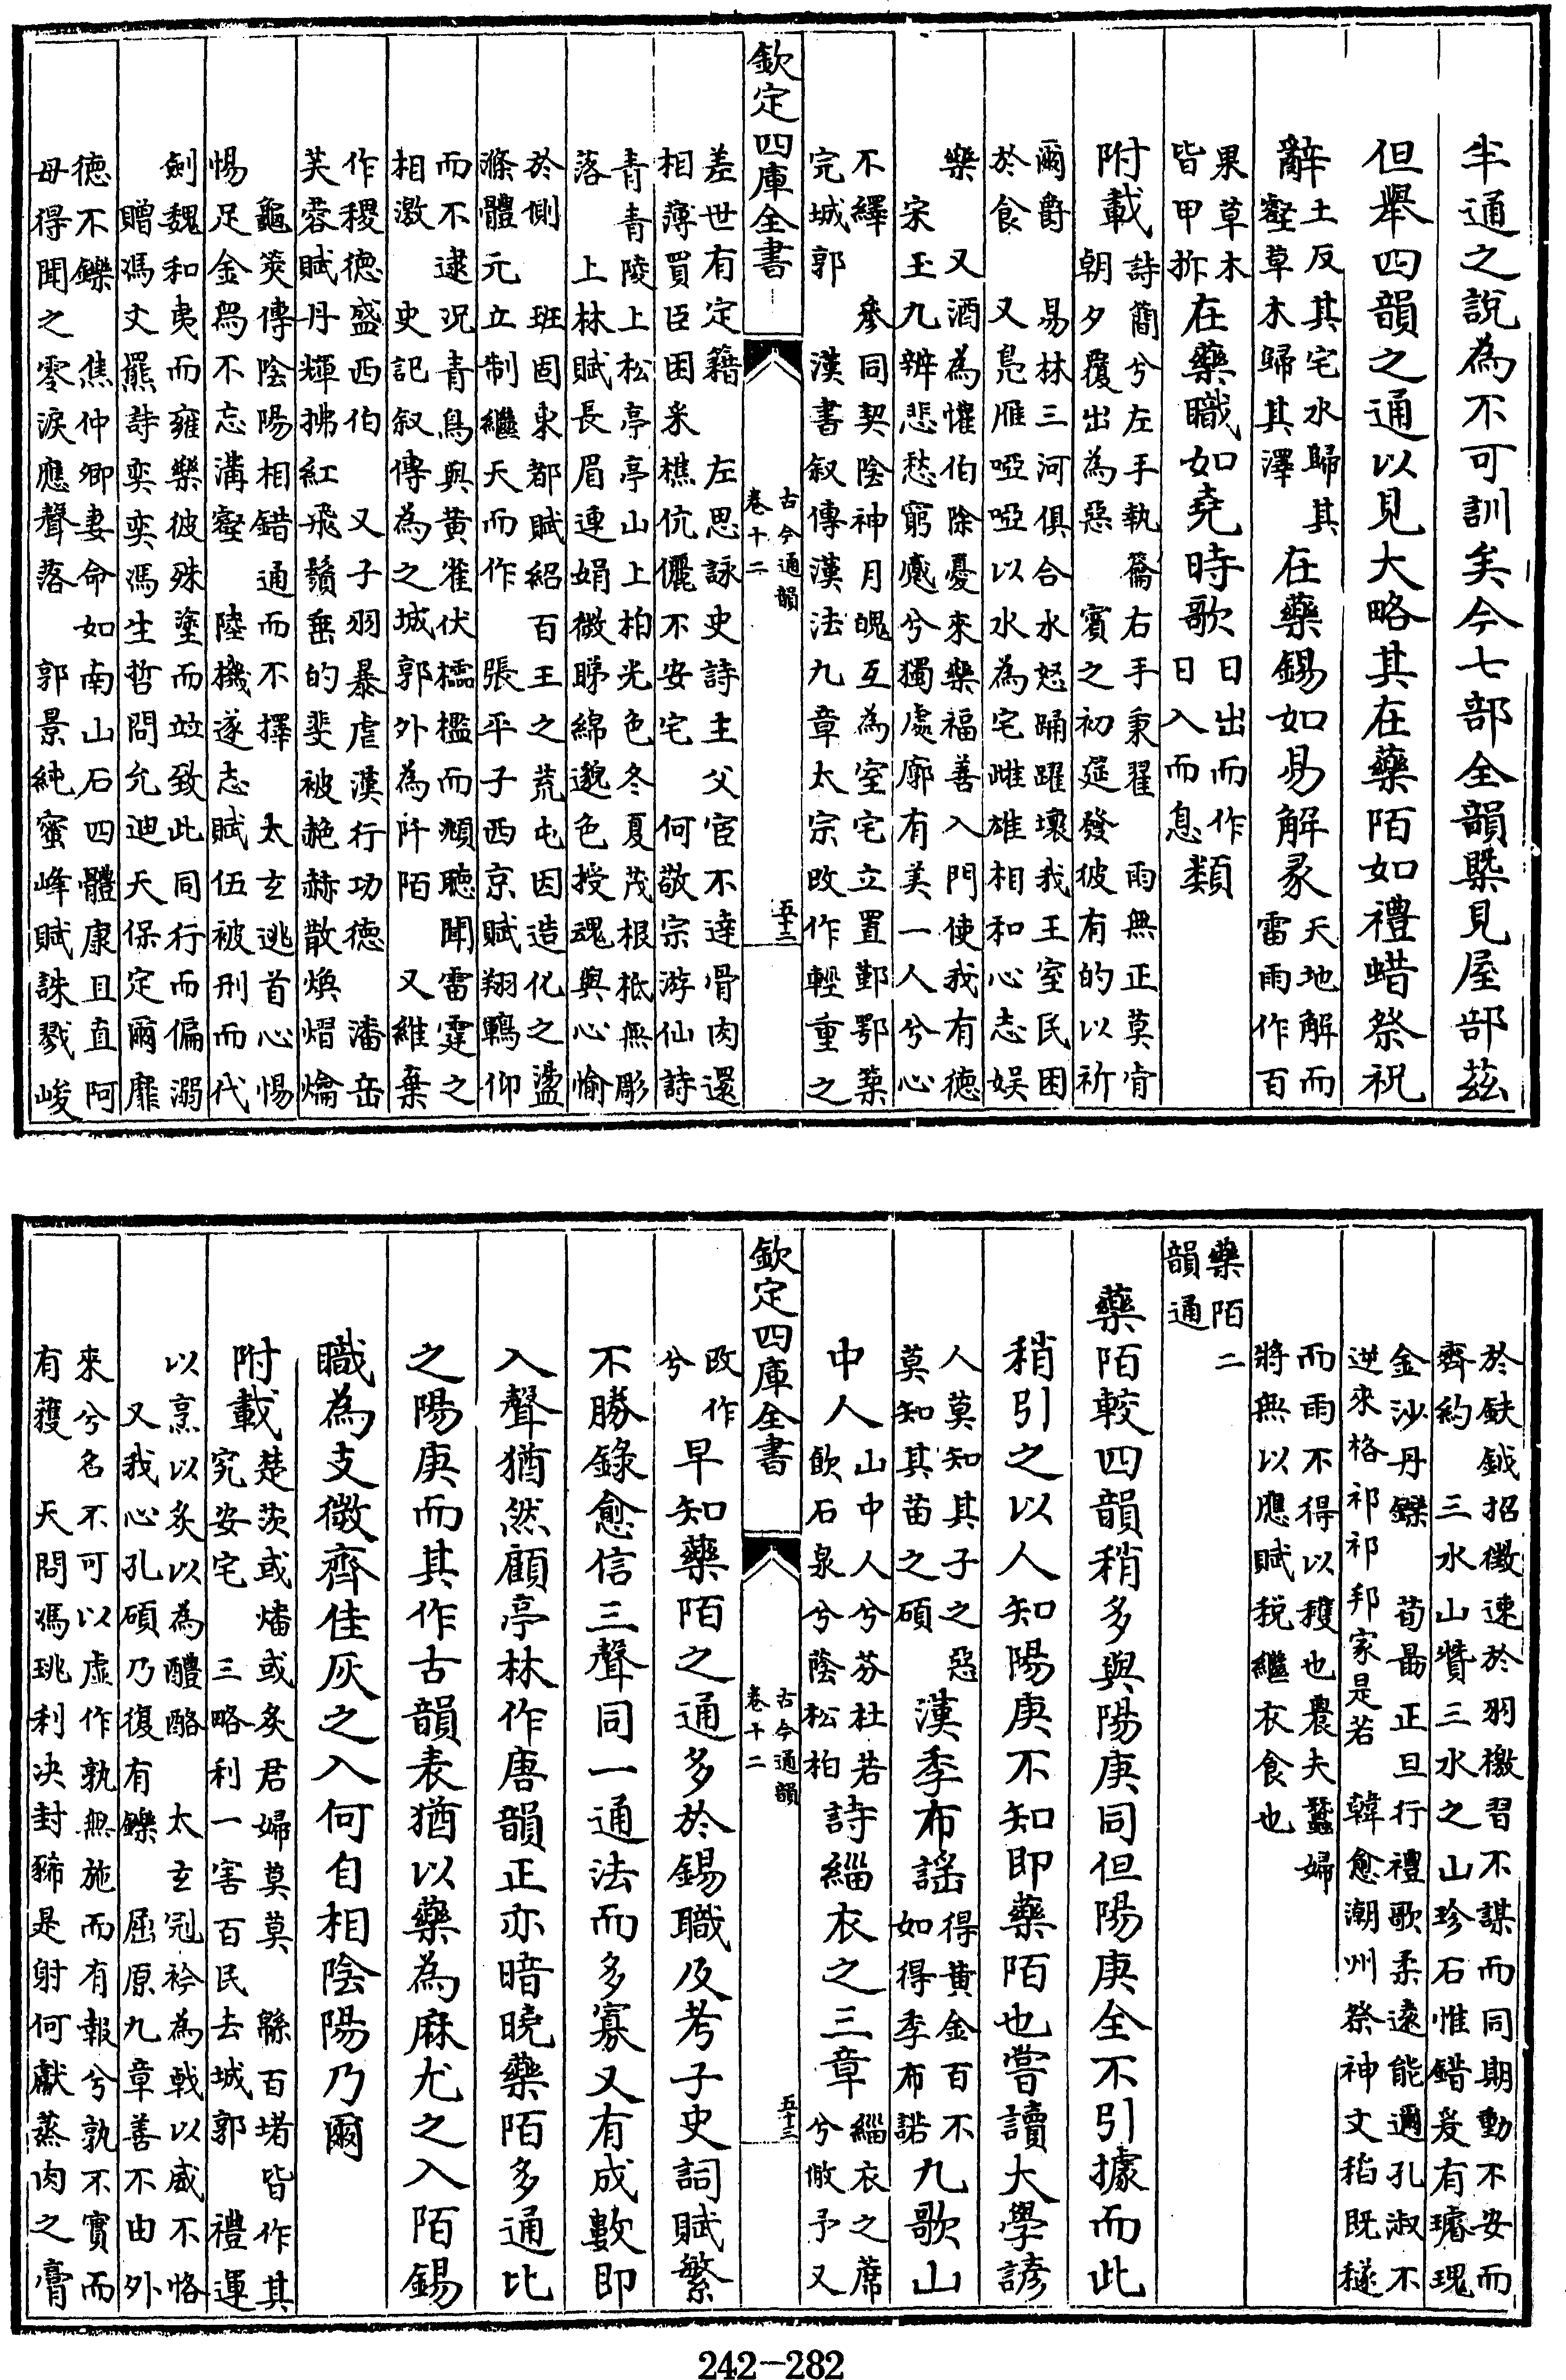 半通之說為不可訓矣今七部全韻槩見屋部茲
但舉四韻之通以見大略其在藥陌如禮蜡祭祝
辭土反其宅水歸其
壑草木歸其澤在藥錫如易解彖天地解而
雷雨作百
果草木
皆甲拆在藥職如堯時歌日出而作
日入而息類
附載詩簡兮左手執籥右手秉翟 雨無正莫肯
朝夕覆出為惡 賓之初筵發彼有的以祈
爾爵 易林三河俱合水怒踊躍壞我王室民困
於食 又鳧雁啞啞以水為宅雌雄相和心志娛
樂 又酒為懽伯除憂來樂福善入門使我有德
宋玉九辨悲愁窮慼兮獨處廓有美一人兮心
不繹 參同契陰神月魄互為室宅立置鄞鄂築
完城郭 漢書叙傳漢法九章太宗改作輕重之
欽定四庫全書
古今通韻
卷十二
五十二
差世有定籍 左思詠史詩主父宦不達骨肉還
相薄買臣困釆樵伉儷不安宅 何敬宗游仙詩
青青陵上松亭亭山上柏光色冬夏茂根柢無彫
落 上林賦長眉連娟微睇綿邈色授魂與心愉
於側 班固東都賦紹百王之荒屯因造化之盪
滌體元立制繼天而作 張平子西京賦翔鶤仰
而不逮況青鳥與黃雀伏櫺檻而頫聽聞雷霆之
相激 史記叙傳為之城郭外為阡陌 又維棄
作稷德盛西伯 又子羽暴虐漢行功德 潘岳
芙蓉賦丹輝拂紅飛鬚垂的斐被赩赫散煥熠爚
龜筴傳陰陽相錯通而不擇 太玄逃首心惕
惕足金舄不忘溝壑 陸機遂志賦伍被刑而代
劍魏和夷而雍樂彼殊塗而竝致此同行而偏溺
贈馮文羆詩奕奕馮生哲問允迪天保定爾靡
德不鑠 焦仲卿妻命如南山石四體康且直阿
母得聞之零淚應聲落 郭景純蜜蜂賦誅戮峻
於鈇鉞招徵速於羽檄習不謀而同期動不安而
齊約 三水山贊三水之山珍石惟錯爰有璿瑰
金沙丹鑠 荀勗正旦行禮歌柔遠能邇孔淑不
逆來格祁祁邦家是若 韓愈潮州祭神文稻既穟
而雨不得以穫也農夫蠶婦
將無以應賦稅繼衣食也
藥陌二
韻通
藥陌較四韻稍多與陽庚同但陽庚全不引據而此
稍引之以人知陽庚不知即藥陌也嘗讀大學諺
人莫知其子之惡
莫知其苗之碩漢季布謡得黃金百不
如得季布諾九歌山
中人山中人兮芬杜若
飲石泉兮蔭松柏詩緇衣之三章緇衣之蓆
兮敝予又
欽定四庫全書
古今通韻
卷十二
五十三
改作
兮早知藥陌之通多於錫職及考子史詞賦繁
不勝錄愈信三聲同一通法而多寡又有成數即
入聲猶然顧亭林作唐韻正亦暗曉藥陌多通比
之陽庚而其作古韻表猶以藥為麻尤之入陌錫
職為支微齊佳灰之入何自相陰陽乃爾
附載楚茨或燔或炙君婦莫莫 緜百堵皆作其
究安宅 三略利一害百民去城郭 禮運
以烹以炙以為醴酪 太玄冠衿為戟以威不恪
又我心孔碩乃復有鑠 屈原九章善不由外
來兮名不可以虛作孰無施而有報兮孰不實而
有穫 天問馮珧利决封豨是射何獻蒸肉之膏
242—282